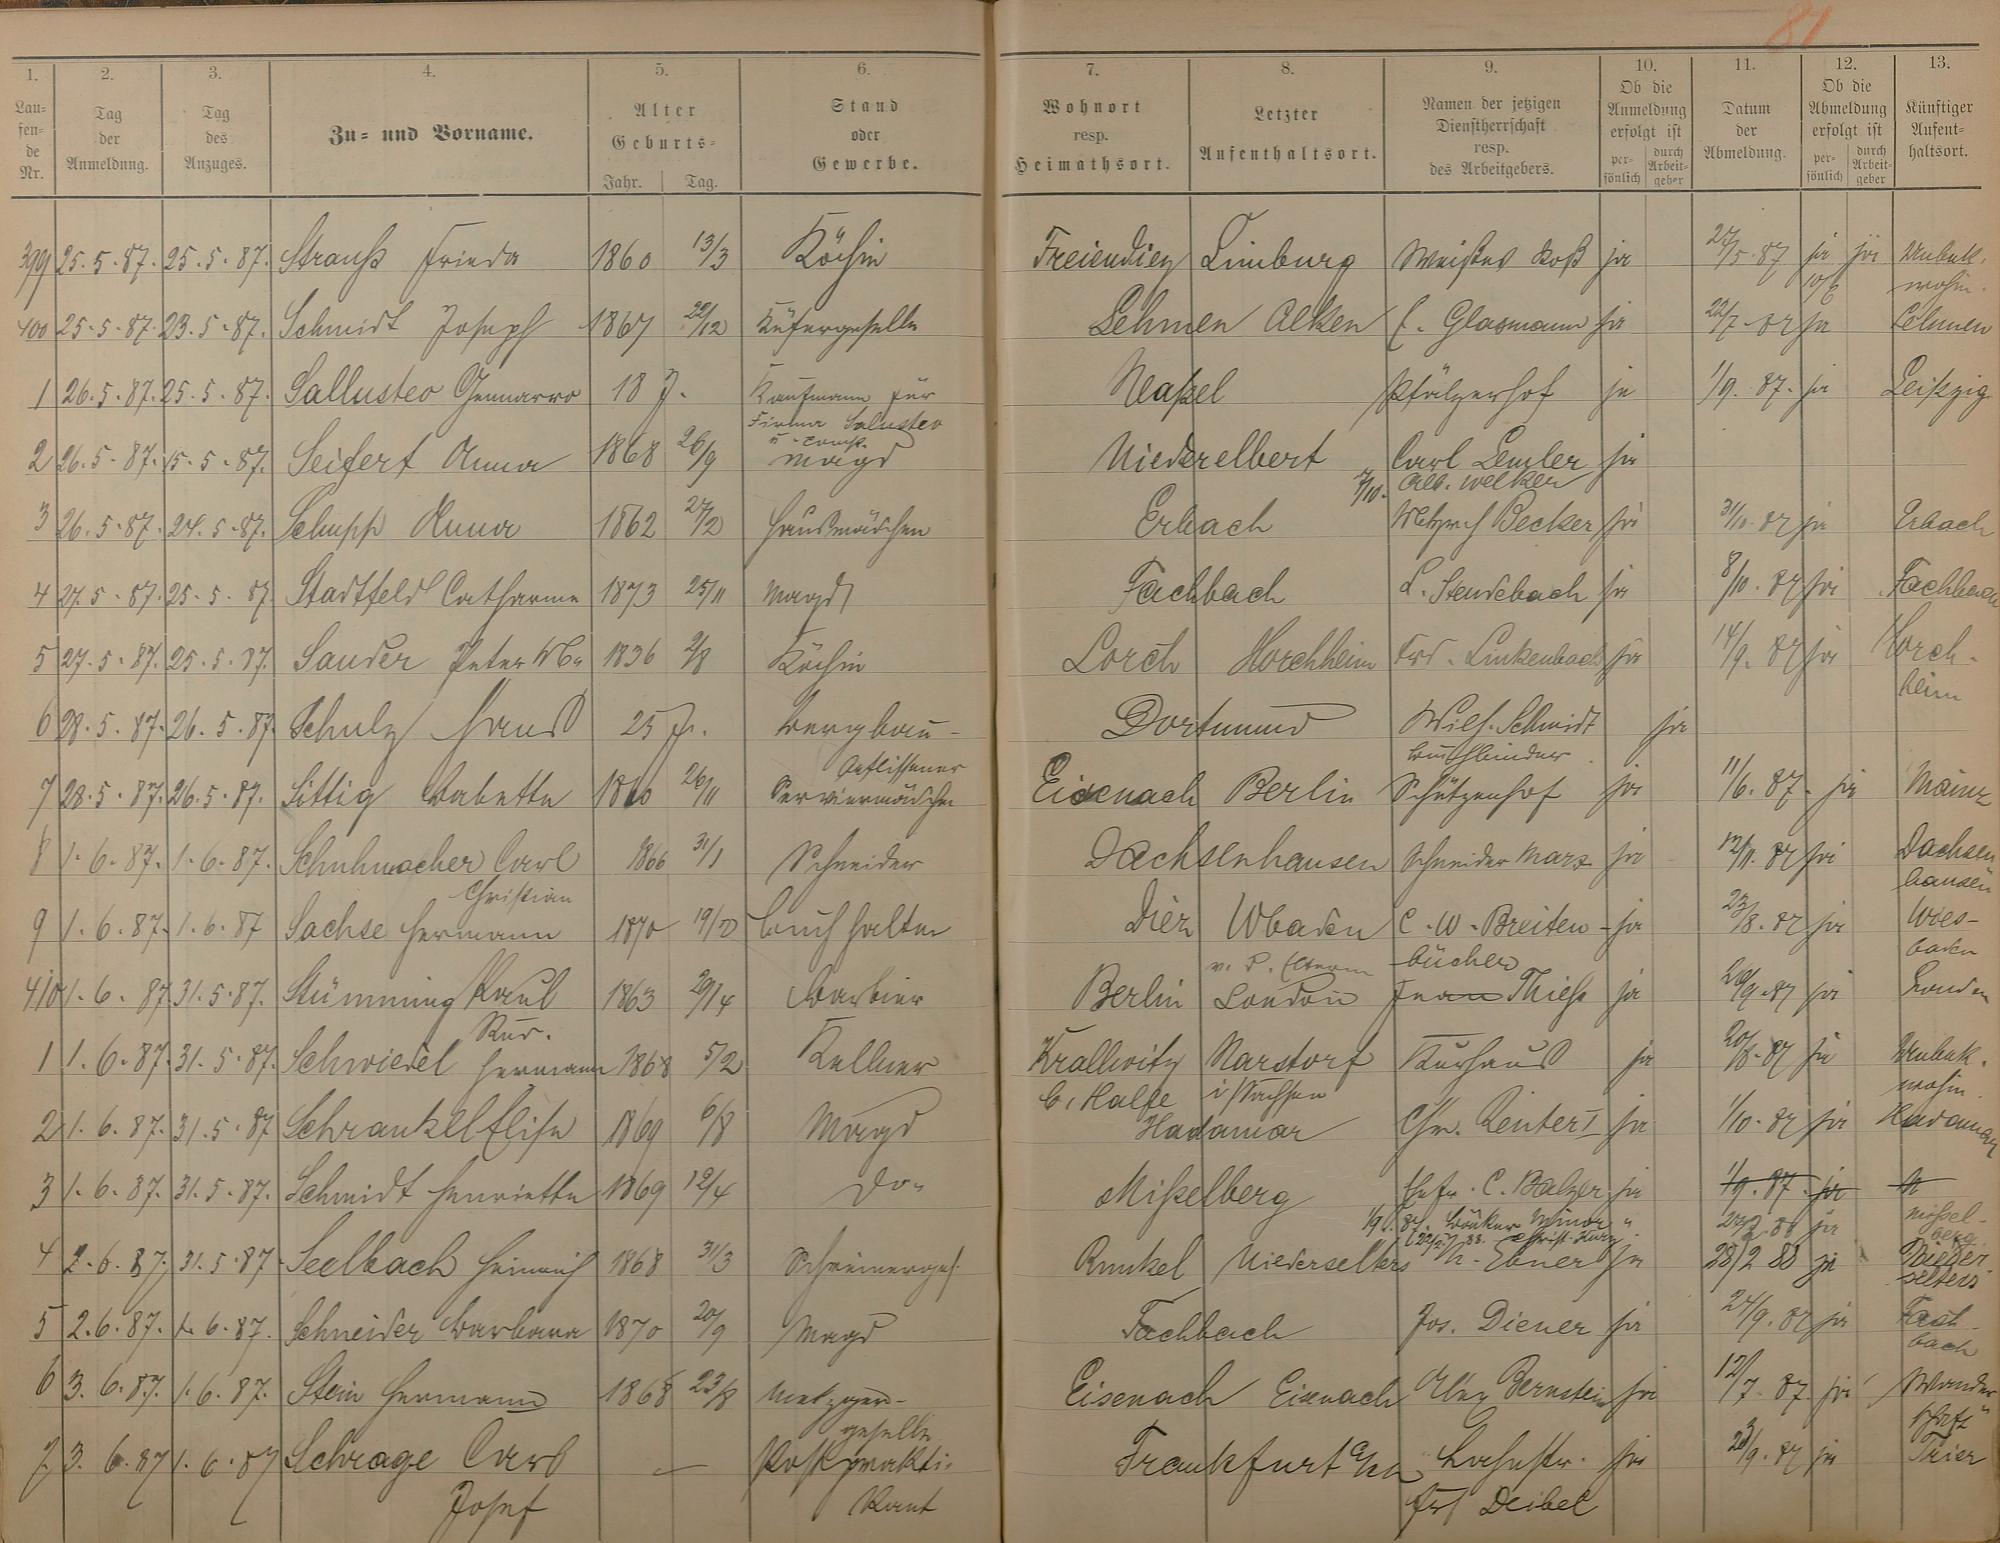 81
1. 2. 3. 4. 5. 6. 7. 8. 9. 10. 11. 12. 13.
Lau-
fen-
de
Nr.
Tag
der
Anmeldung.
Tag
des
Anzuges.
Zu- und Vorname.
Alter
Geburts-
Jahr. Tag.
Stand
oder
Gewerbe.
Wohnort
resp.
Heimathsort.
Letzter
Aufenthaltsort.
Namen der jetzigen
Dienstherrschaft
resp.
des Arbeitgebers.
Ob die
Anmeldung
erfolgt ist
per-
sönlich
durch
Arbeit-
geber
Datum
der
Abmeldung.
Ob die
Abmeldung
erfolgt ist
per-
sönlich
durch
Arbeit-
geber
Künftiger
Aufent-
haltsort.
399 25.5.87. 25.5.87. Strauß Frieda 1860 13/3 Köchin Freiendiez Limburg Weißes Roß ja 27/5.87 ja ja Unbek.
10/6 wohin.
400 25.5.87. 23.5.87. Schmidt Joseph 1867 22/12 Küfergeselle Lehmen Alken C. Glasmann ja 22/7.87 ja Lehmen
1 26.5.87. 25.5.87. Sallusteo Gennarro 18 J. Kaufmann für Neapel Pfälzerhof ja 1/9.87. ja Leipzig
Firma Salusteo
u. Comp.
2 26.5.87. 15.5.87. Seifert Anna 1868 26/9 Magd Niederelbert Carl Lemler ja
7/10. Alb. Welker
3 26.5.87. 24.5.87. Schupp Anna 1862 27/2 Hausmädchen Erbach Becker ja 31/10.87 ja Erbach
4 27.5.87. 25.5.87 Stadtfeld Catharine 1873 25/11 Magd Fachbach L. Stendebach ja 8/10.87 ja Fachbach
5 27.5.87. 25.5.87. Sander Peter Ww. 1836 2/8 Köchin Lorch Horchheim Frd. Linkenbach ja 14/9.87 ja Horch-
heim
6 28.5.87. 26.5.87. Schulz Hans 25 J. Bergbau- Dortmund Wilh. Schmidt ja
Beflissener Buchbinder
7 28.5.87. 26.5.87. Sittig Babette 26/11 Serviermädchen Eisenach Berlin Schützenhof ja 11/6.87. ja Mainz
8 1.6.87. 1.6.87. Schuhmacher Carl 1866 31/1 Schneider Dachsenhausen Schneider Marx ja 12/11.87 ja Dachsen
Christian hausen
9 1.6.87. 1.6.87 Sachse Hermann 1870 Buchhalter Diez Wbaden C. W. Breiten- ja 23/8.87 ja Wies-
v. d. Eltern bücher baden
410 1.6.87 31.5.87. Stümming Paul 1863 29/4 Barbier Berlin London Thiess ja 26/9.87 ja London
Rud.
1 1.6.87. 31.5.87. Schwiedel Hermann 1868 5/2 Kellner Krallwitz Narstorf Kurhaus ja 20/8.87 ja Unbek.
b. Halle i/Sachsen wohin.
2 1.6.87. 31.5.87 Schrankel Elise 1869 6/8 Magd Hadamar Chr. Reuter I ja 1/10.87 ja Hadamar
3 1.6.87. 31.5.87. Schmidt Henriette 1869 12/4 Do. Misselberg C. Balzer ja 1/9.87. ja
1/9.87. Bäcker Minor "
ja Missel-
berg
4 2.6.87. 31.5.87 Seelbach Heinrich 1868 31/3 Schreinerges. Runkel Niederselters H. Ebner ja 28/2 88 ja Nieder-
selters
5 2.6.87. 1.6.87. Schneider Barbara 1870 20/9 Magd Fachbach Jos. Diener ja 24/9.87 ja Fach-
bach
6 3.6.87. 1.6.87. Stein Hermann 1868 23/8 Metzger- Eisenach Eisenach Bernstein ja 12/7.87. ja Wander
geselle
7 3.6.87 1.6.87 Schrage Carl — Postprakti- Frankfurt a/M Lahnstr. ja 23/9.87 ja Trier
Josef kant Frl Deibel